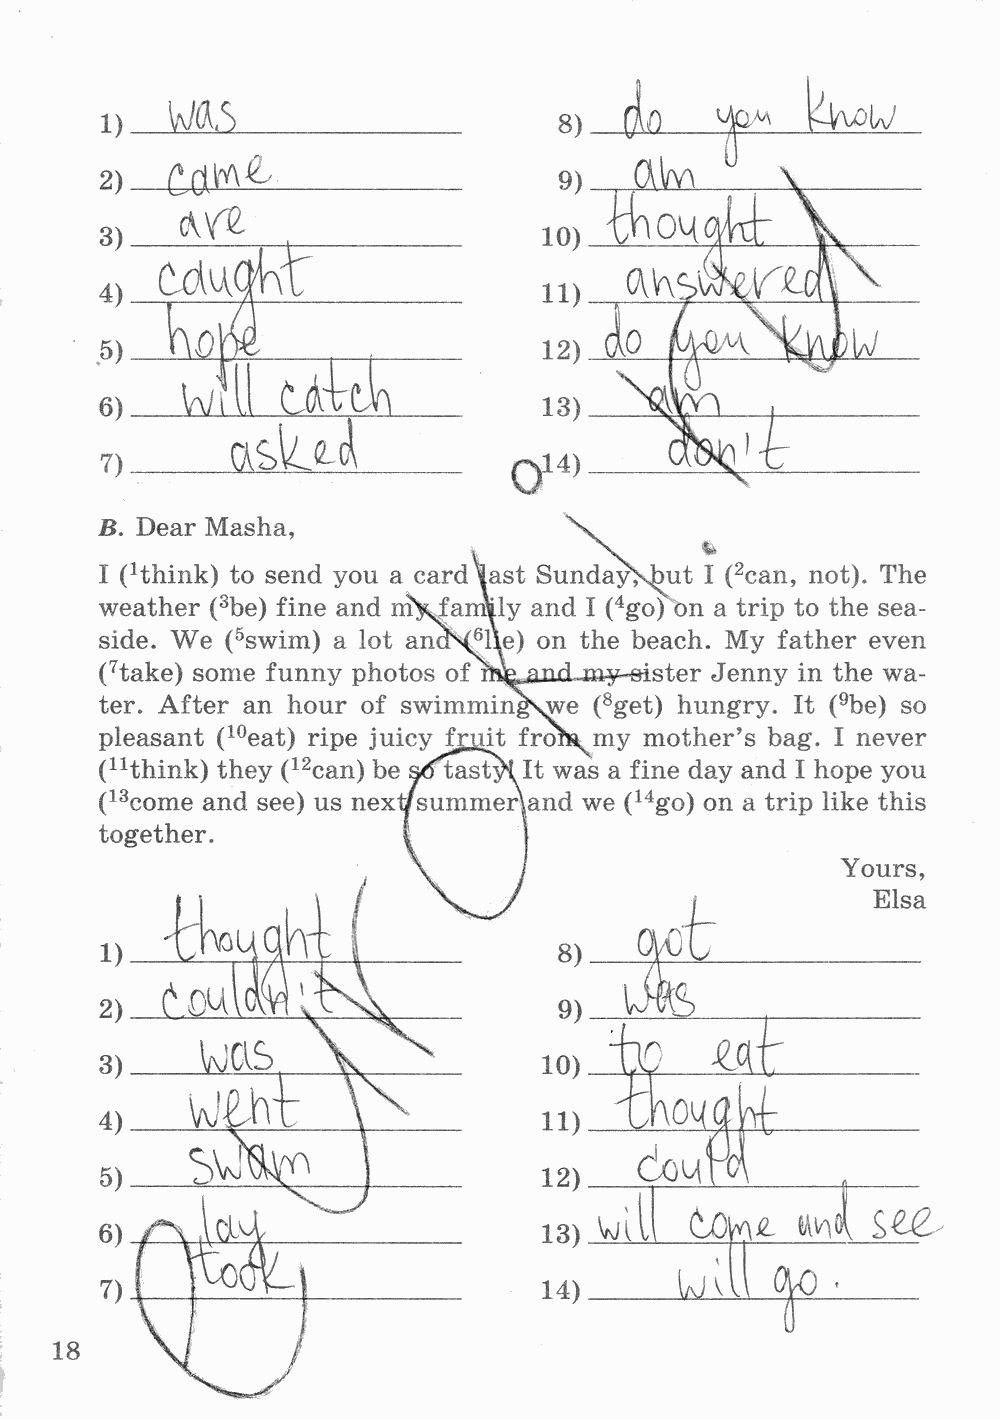 1) was
2) came
3) are
4) caught
5) hope
6) will catch
7) asked
8) do you know
9) am
10) thought
11) answered
12) do you know
13) am
14) don't
B. Dear Masha,
I (¹think) to send you a card last Sunday, but I (²can, not). The
weather (³be) fine and my family and I (⁴go) on a trip to the sea-
side. We (⁵swim) a lot and (⁶lie) on the beach. My father even
(⁷take) some funny photos of me and my sister Jenny in the wa-
ter. After an hour of swimming we (⁸get) hungry. It (⁹be) so
pleasant (¹⁰eat) ripe juicy fruit from my mother's bag. I never
(¹¹think) they (¹²can) be so tasty! It was a fine day and I hope you
(¹³come and see) us next summer and we (¹⁴go) on a trip like this
together.
Yours,
Elsa
1) thought
2) couldn't
3) was
4) went
5) swam
6) lay
7) took
8) got
9) was
10) to eat
11) thought
12) could
13) will come and see
14) will go.
18